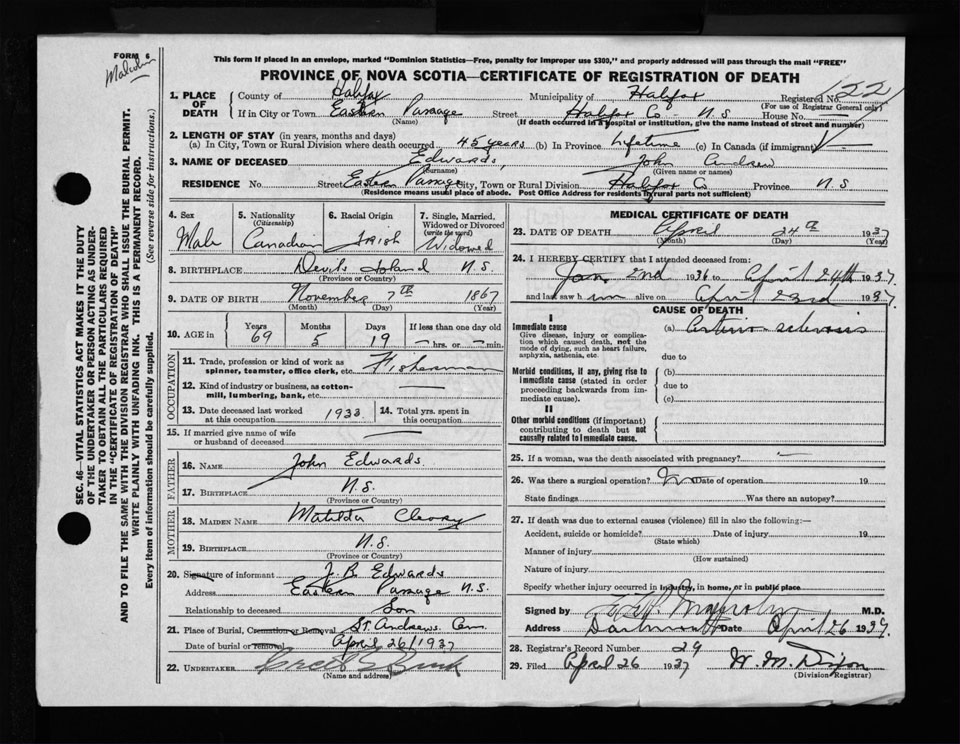 FORM 6
Malcolm
SEC. 46—VITAL STATISTICS ACT MAKES IT THE DUTY
OF THE UNDERTAKER OR PERSON ACTING AS UNDER-
TAKER TO OBTAIN ALL THE PARTICULARS REQUIRED
IN THE "CERTIFICATE OF REGISTRATION OF DEATH"
AND TO FILE THE SAME WITH THE DIVISION REGISTRAR WHO SHALL ISSUE THE BURIAL PERMIT.
WRITE PLAINLY WITH UNFADING INK. THIS IS A PERMANENT RECORD.
Every item of information should be carefully supplied. (See reverse side for instructions.)
This form if placed in an envelope, marked "Dominion Statistics—Free, penalty for improper use $300," and properly addressed will pass through the mail "FREE"
PROVINCE OF NOVA SCOTIA—CERTIFICATE OF REGISTRATION OF DEATH
1. PLACE OF DEATH
County of Halifax Municipality of Halifax Registered No. 122
(For use of Registrar General only)
If in City or Town Eastern Passage Street Halifax Co N.S House No. —
(Name) (If death occurred in a hospital or institution, give the name instead of street and number)
2. LENGTH OF STAY (in years, months and days)
(a) In City, Town or Rural Division where death occurred 45 years (b) In Province Lifetime (c) In Canada (if immigrant) —
3. NAME OF DECEASED Edwards, John Andrew
(Surname) (Given name or names)
RESIDENCE No. Street Eastern Passage City, Town or Rural Division Halifax Co Province N.S
(Residence means usual place of abode. Post Office Address for residents in rural parts not sufficient)
4. Sex
Male
5. Nationality
(Citizenship)
Canadian
6. Racial Origin
Irish
7. Single, Married,
Widowed or Divorced
(write the word)
Widowed
8. BIRTHPLACE Devils Island N.S.
(Province or Country)
9. DATE OF BIRTH November 7th 1867
(Month) (Day) (Year)
10. AGE in
Years 69
Months 5
Days 19
If less than one day old
— hrs. or — min.
OCCUPATION
11. Trade, profession or kind of work as
spinner, teamster, office clerk, etc. Fisherman
12. Kind of industry or business, as cotton-
mill, lumbering, bank, etc. —
13. Date deceased last worked
at this occupation 1933
14. Total yrs. spent in
this occupation
15. If married give name of wife
or husband of deceased —
FATHER
16. NAME John Edwards
17. BIRTHPLACE N.S.
(Province or Country)
MOTHER
18. MAIDEN NAME Matilda
19. BIRTHPLACE N.S.
(Province or Country)
20. Signature of informant J. B Edwards
Address Eastern Passage N.S.
Relationship to deceased Son
21. Place of Burial, Cremation or Removal St. Andrews Cem.
Date of burial or removal April 26/1937
22. UNDERTAKER
(Name and address)
MEDICAL CERTIFICATE OF DEATH
23. DATE OF DEATH April 24th 1937
(Month) (Day) (Year)
24. I HEREBY CERTIFY that I attended deceased from:
Jan 2nd 1936 to April 24th 1937
and last saw him alive on April 23rd 1937
CAUSE OF DEATH
I
Immediate cause
Give disease, injury or complica-
tion which caused death, not the
mode of dying, such as heart failure,
asphyxia, asthenia, etc.
(a) Arterio-sclerosis
due to
Morbid conditions, if any, giving rise to
immediate cause (stated in order
proceeding backwards from im-
mediate cause).
(b)
due to
(c)
II
Other morbid conditions (if important)
contributing to death but not
causally related to immediate cause.
25. If a woman, was the death associated with pregnancy? —
26. Was there a surgical operation? No Date of operation 19
State findings Was there an autopsy?
27. If death was due to external causes (violence) fill in also the following:—
Accident, suicide or homicide? Date of injury 19
(State which)
Manner of injury
(How sustained)
Nature of injury
Specify whether injury occurred in industry, in home, or in public place
Signed by M.D.
Address Dartmouth Date April 26 1937
28. Registrar's Record Number 29
29. Filed April 26 1937 W. M. Dixon
(Division Registrar)